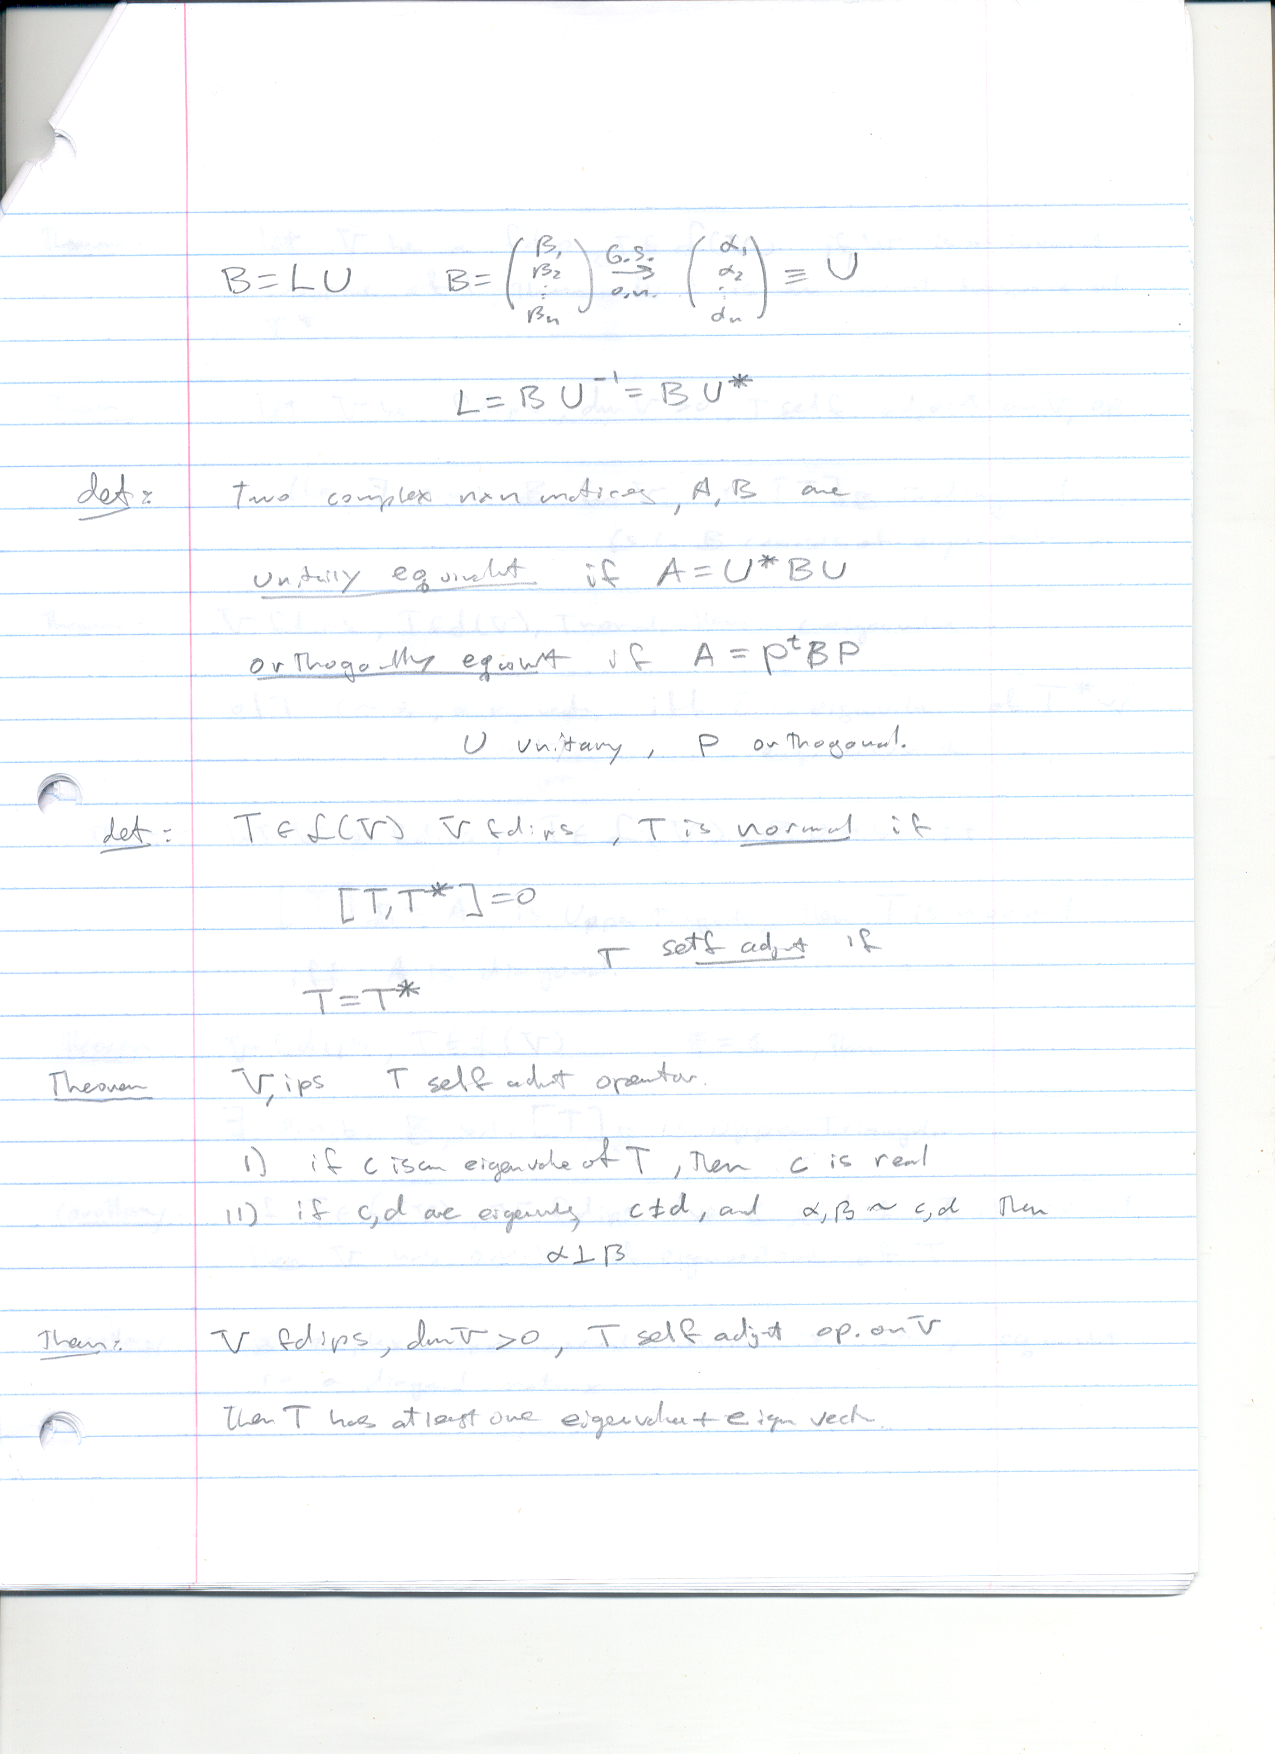 B = LU   B = (β₁ β₂ ⋮ βₙ) G.S. → o.n. (α₁ α₂ ⋮ αₙ) ≡ U
L = B U⁻¹ = B U*
def: Two complex nxn matrices, A, B are
unitarily equivalent if A = U* B U
orthogonally equivalent if A = Pᵗ B P
U unitary, P orthogonal.
def: T ∈ L(V) V fdips, T is normal if
[T, T*] = 0
T self adjoint if
T = T*
Theorem V, ips T self adjoint operator.
i) if c is an eigenvalue of T, then c is real
ii) if c, d are eigenvals, c ≠ d, and α, β ~ c, d then
α ⊥ β
Thm: V fdips, dim V > 0, T self adjoint op. on V
then T has at least one eigenvalue + eigen vector.